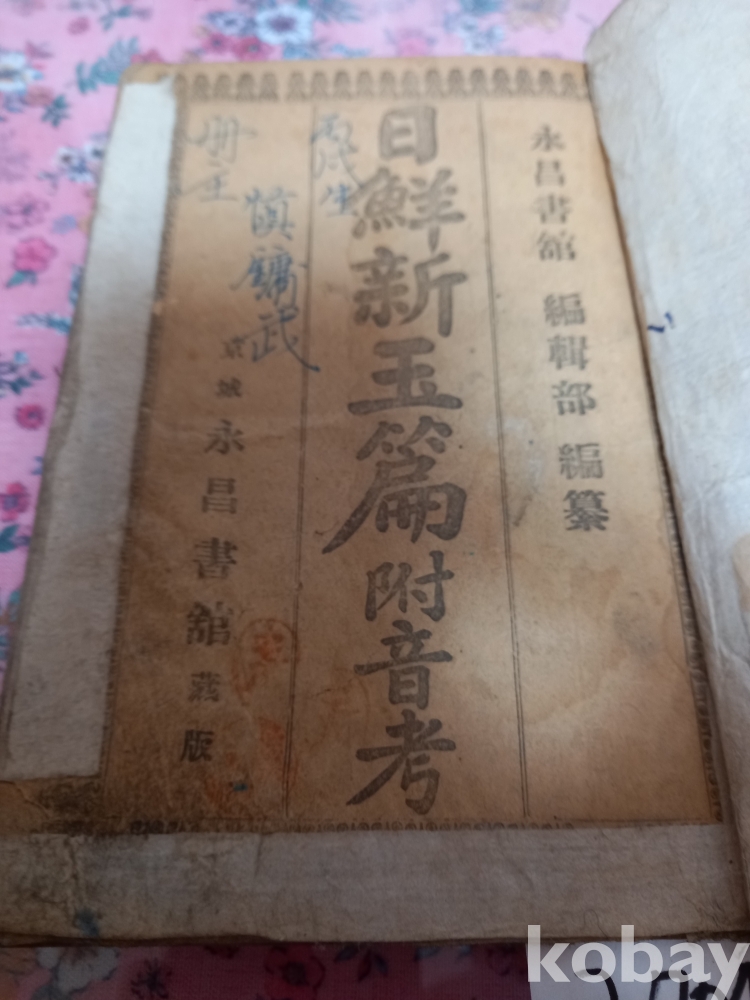 永昌書舘 編輯部 編纂
日鮮新玉篇附音考
京城 永昌書舘 蔵版
丙戌生
冊主
愼鏞武
kobay